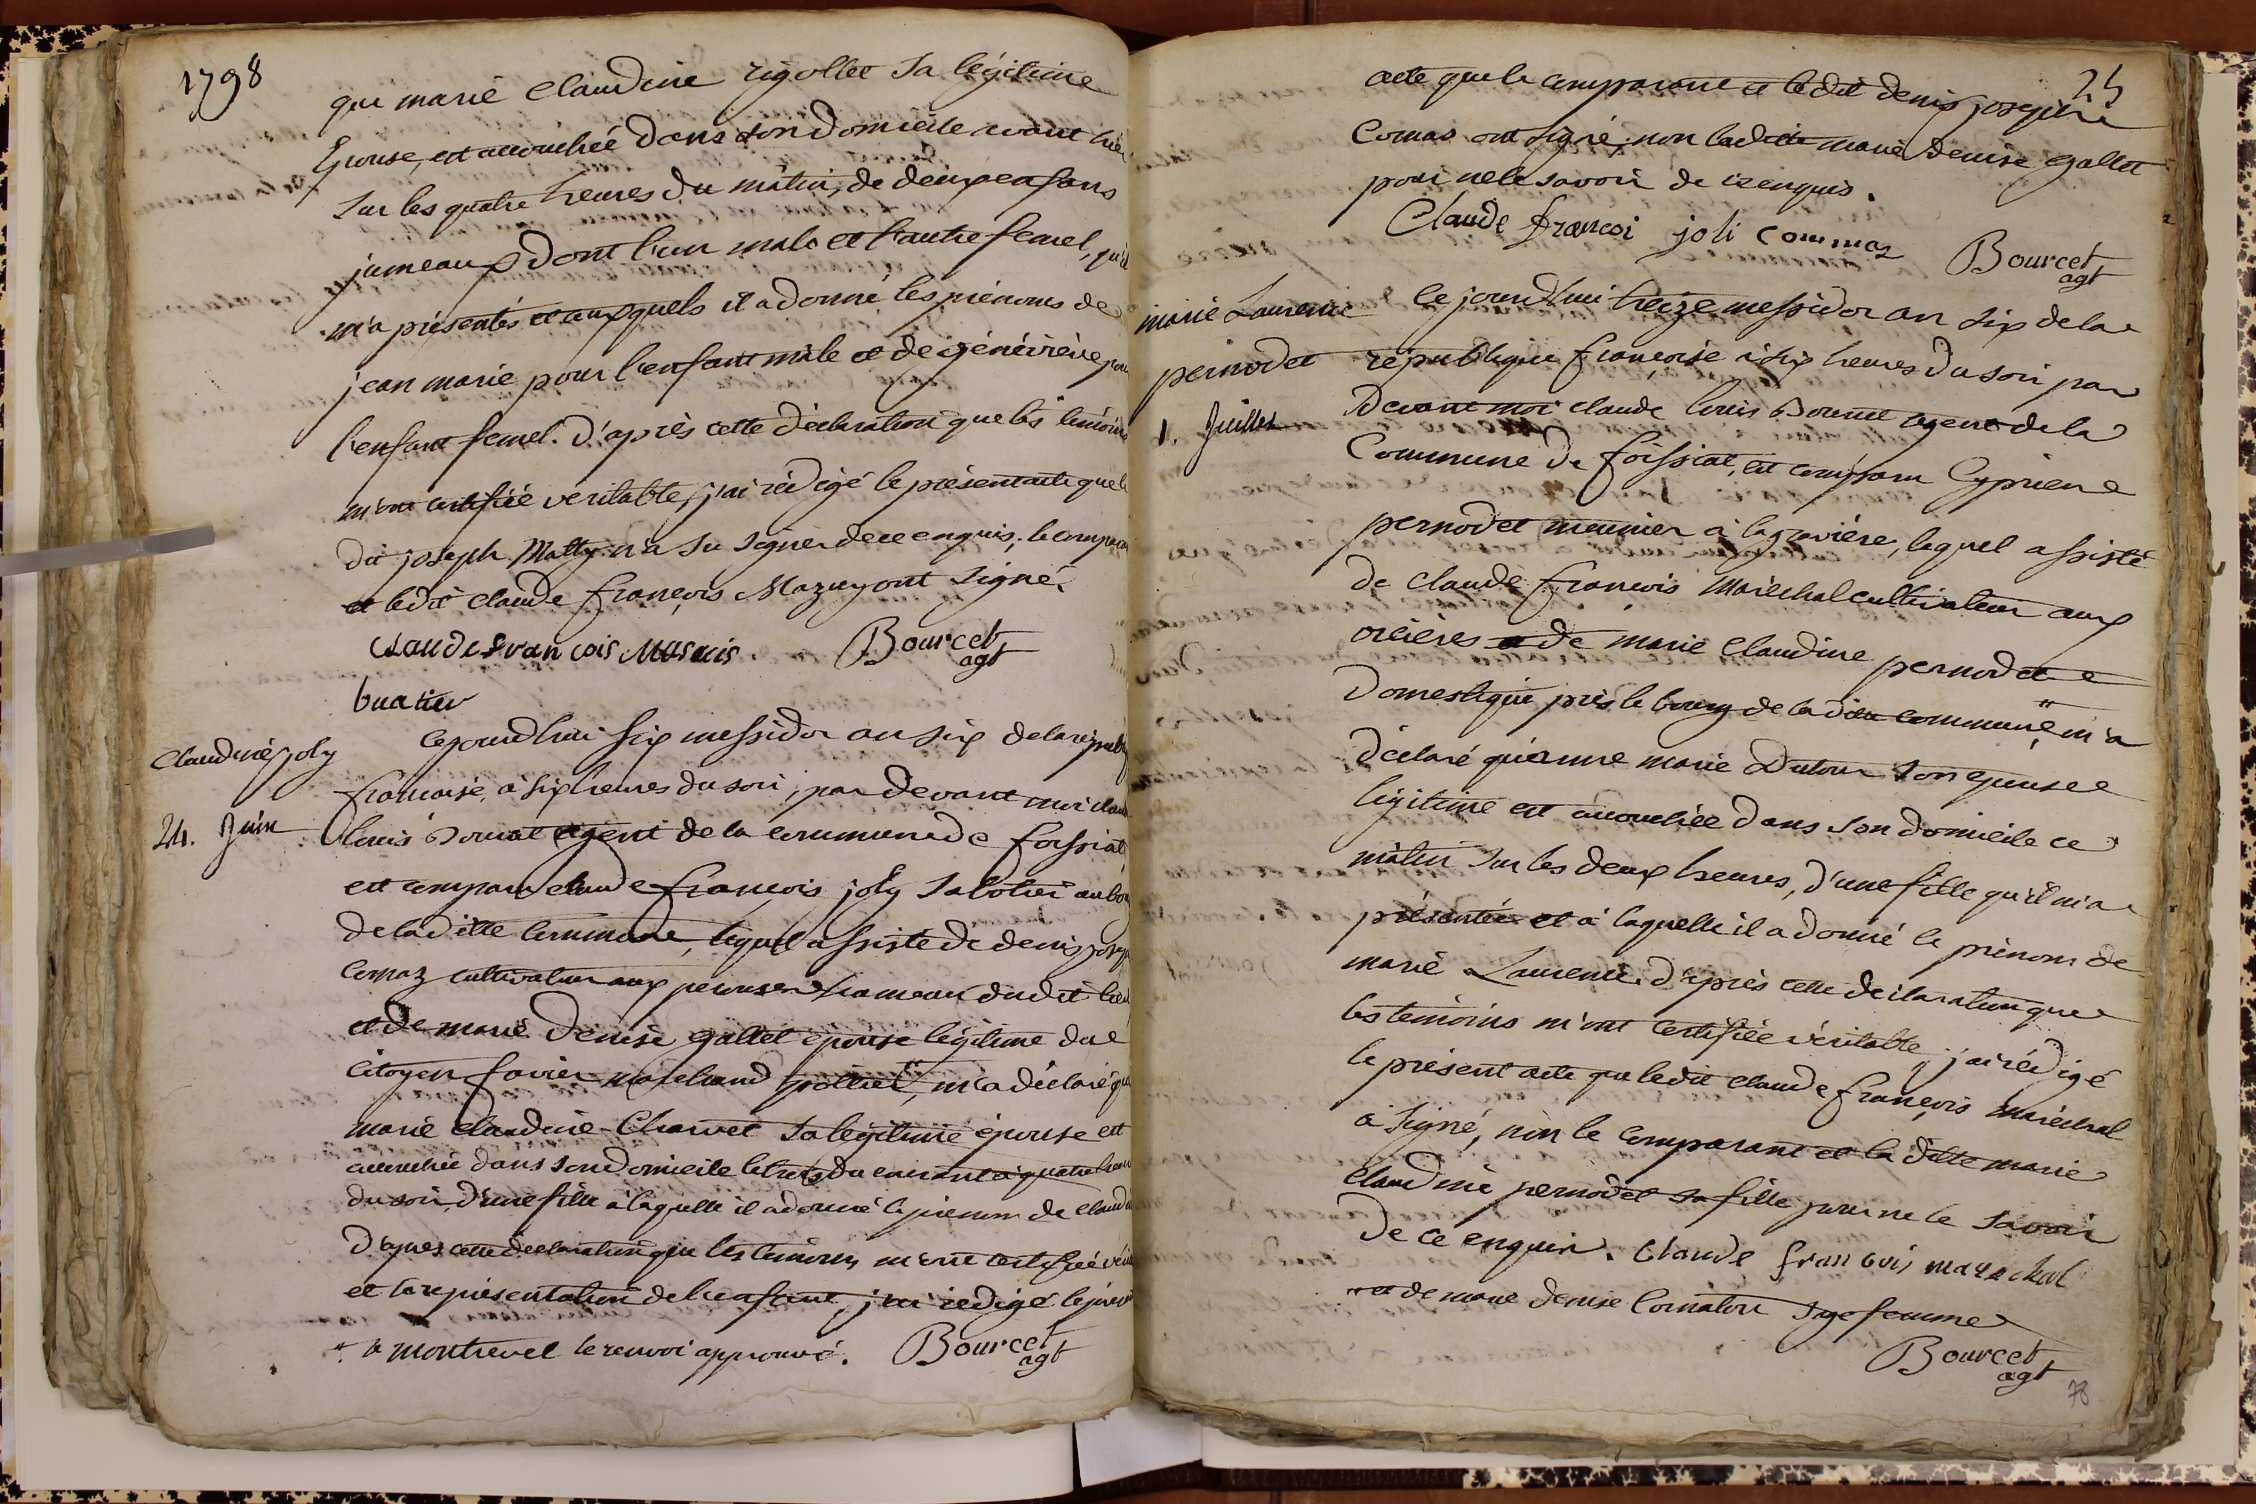 1798
que marie Claudine rigollet sa légitime
Epouse, est accouchée dans son domicile avant hier
sur les quatre heures du matin, de deux enfans
jumeaux dont l'un male et l'autre femel, qu'il
m'a présentés et auxquels il a donné les prénoms de
jean marie pour l'enfant mâle et de géneviève pour
l'enfant femel. D'après cette déclaration que les témoins
m'ont certifiée veritable, j'ai rédigé le présent acte que le
dit joseph Matty n'a su signer de ce enquis; le comparant
et ledit claude françois Mazuy ont signé.
Claude francois Masuis Bourcet
agt
buatier
Claudine joly
24. Juin
Cejourdhui six messidor an six de la républ
francaise, à six heures du soir, par devant moi claude
louis Bourcet agent de la commune de foissiat
est comparu claude françois joly sabotier au bourg
de la ditte commune, lequel assisté de denis joseph
Comaz cultivateur aux perouses hameau dudit lieu
et de marie denise gallet épouse légitime du
citoyen favier marchand pottier", m'a déclaré que
marie claudine Charvet sa légitime épouse est
accouchée dans son domicile le trois du courant à quatre heures
du soir, d'une fille à laquelle il a donné le prénom de claudine
D'après cette déclaration que les témoins m'ont certifiée véritable
et la représentation de l'enfant, j'ai rédigé le présent
" à montrevel le renvoi approuvé. Bourcet
agt
25
acte que le comparant et ledit denis joseph
Comas ont signé, non laditte marie denise gallet
pour ne le savoir de ce enquis.
Claude francoi joli commaz Bourcet
agt
marie Laurence
pernodet
1. Juillet
Ce jourd'hui treize messidor an six de la
république françoise à six heures du soir par
devant moi claude louis Bourcet agent de la
Commune de foissiat, est comparu Cyprien
pernodet meunier à la gravière, lequel assisté
de claude françois Maréchal cultivateur aux
orcières et de marie claudine pernodet
domestique près le bourg de la ditte commune" m'a
déclaré qu'anne marie Dutour son epouse
légitime est accouchée dans son domicile ce
matin sur les deux heures, d'une fille qu'il m'a
présentée et à laquelle il a donné le prénom de
marie Laurence. D'après cette déclaration que
les témoins m'ont certifiée véritable, j'ai rédigé
le présent acte que ledit claude françois maréchal
a signé, non le comparant et la ditte marie
claudine pernodet sa fille pour ne le savoir
De ce enquis. Claude francois marechal
" et de marie denise Comaton sage femme
Bourcet
agt
78